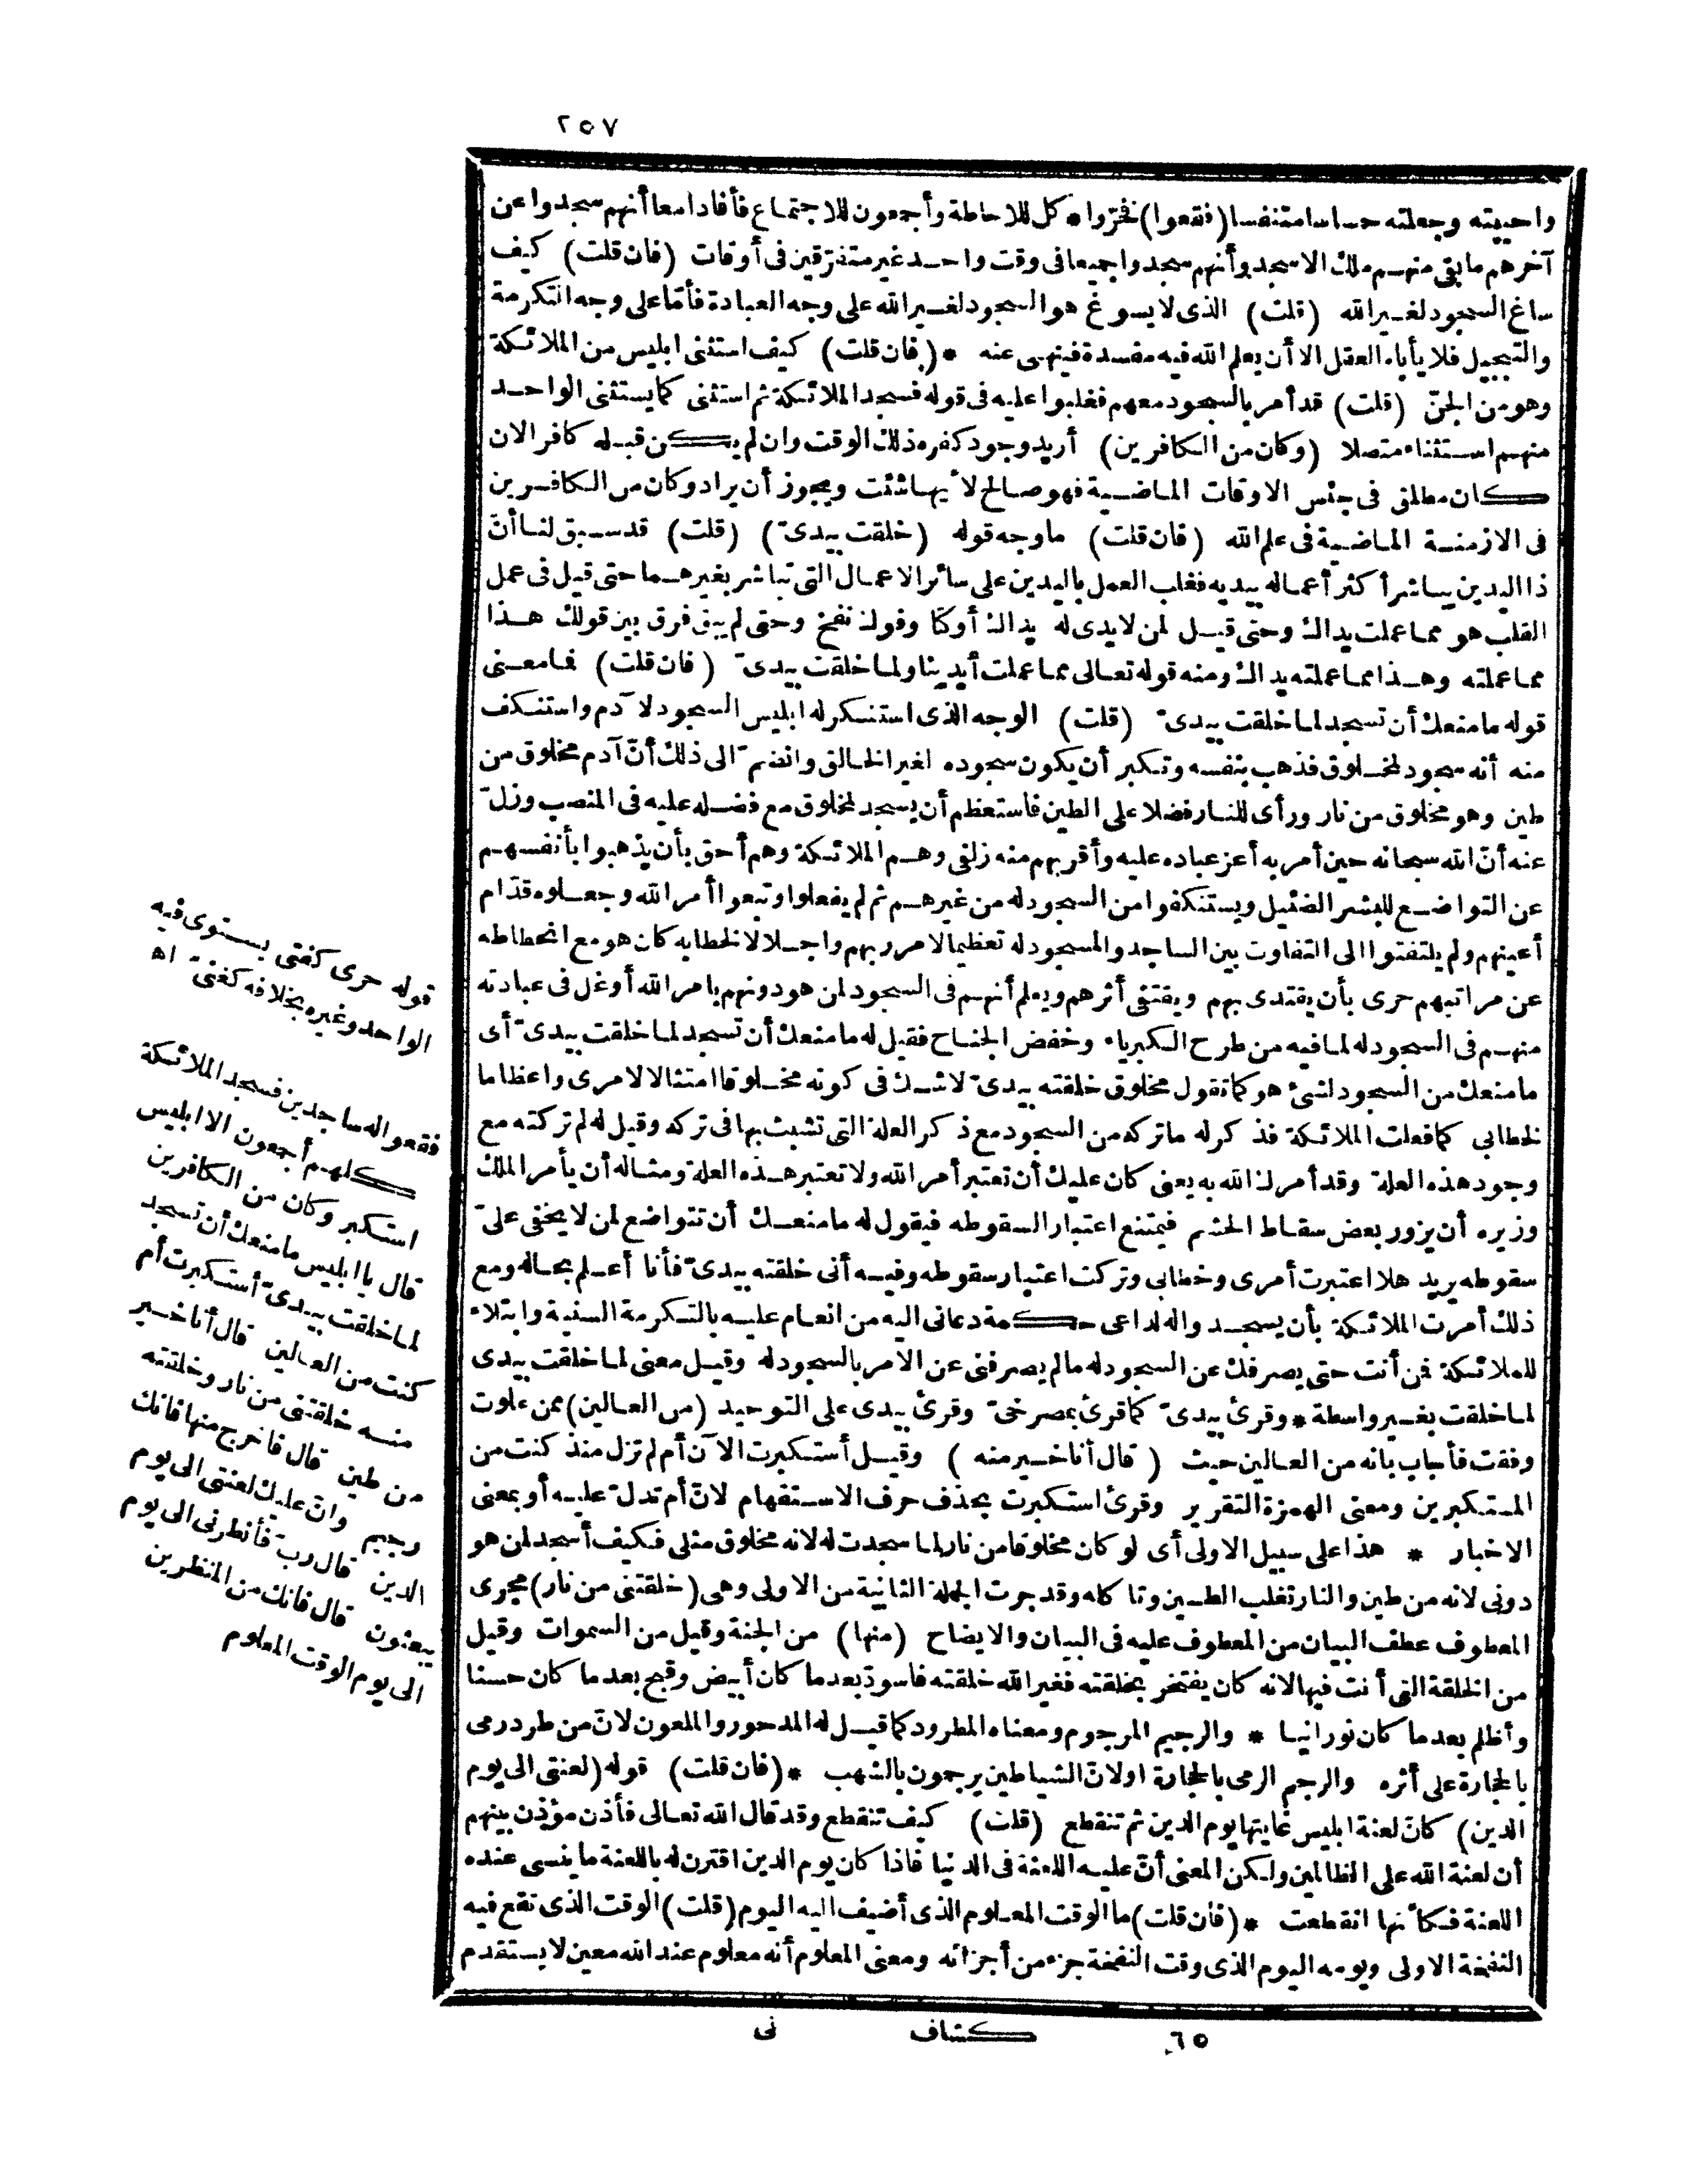 ٢٥٧
واحييته وجعلته حساسا متنفسا (فقعوا) فخرّوا * كل للاحاطة وأجمعون للاجتماع فأفادا معا أنهم سجدوا عن
آخرهم ما بقى منهم ملك الا سجد وأنهم سجدوا جميعا فى وقت واحد غير متفرّقين فى أوقات (فان قلت) كيف
ساغ السجود لغير الله (قلت) الذى لا يسوغ هو السجود لغير الله على وجه العبادة فأمّا على وجه التكرمة
والتبجيل فلا يأباه العقل الا أن يعلم الله فيه مفسدة فينهى عنه * (فان قلت) كيف استثنى ابليس من الملائكة
وهو من الجنّ (قلت) قد أمر بالسجود معهم فغلبوا عليه فى قوله فسجد الملائكة ثم استثنى كما يستثنى الواحد
منهم استثناء متصلا (وكان من الكافرين) أريد وجود كفره ذلك الوقت وان لم يكن قبله كافرا لان
كان مطلق فى جنس الاوقات الماضية فهو صالح لأيها شئت ويجوز أن يراد وكان من الكافرين
فى الازمنة الماضية فى علم الله (فان قلت) ما وجه قوله (خلقت بيدىّ) (قلت) قد سبق لنا أنّ
ذا اليدين يباشر أكثر أعماله بيديه فغلب العمل باليدين على سائر الاعمال التى تباشر بغيرهما حتى قيل فى عمل
القلب هو مما عملت يداك وحتى قيل لمن لا يدى له يداك أوكتا وفوك نفخ وحتى لم يبق فرق بين قولك هذا
مما عملته وهذا مما عملته يداك ومنه قوله تعالى مما عملت أيدينا ولما خلقت بيدىّ (فان قلت) فما معنى
قوله ما منعك أن تسجد لما خلقت بيدىّ (قلت) الوجه الذى استنكر له ابليس السجود لآدم واستنكف
منه أنه سجود لمخلوق فذهب بنفسه وتكبر أن يكون سجوده لغير الخالق وانضمّ الى ذلك أنّ آدم مخلوق من
طين وهو مخلوق من نار ورأى للنار فضلا على الطين فاستعظم أن يسجد لمخلوق مع فضله عليه فى المنصب وزلّ
عنه أنّ الله سبحانه حين أمر به أعز عباده عليه وأقربهم منه زلفى وهم الملائكة وهم أحق بأن يذهبوا بأنفسهم
عن التواضع للبشر الضئيل ويستنكفوا من السجود له من غيرهم ثم لم يفعلوا وتبعوا أمر الله وجعلوه قدّام
أعينهم ولم يلتفتوا الى التفاوت بين الساجد والمسجود له تعظيما لامر ربهم واجلالا لخطابه كان هو مع انحطاطه
عن مراتبهم حرى بأن يقتدى بهم ويقتفى أثرهم ويعلم أنهم فى السجود لمن هو دونهم بامر الله أوغل فى عبادته
منهم فى السجود له لما فيه من طرح الكبرياء وخفض الجناح فقيل له ما منعك أن تسجد لما خلقت بيدىّ أى
ما منعك من السجود لشىء هو كما تقول مخلوق خلقته بيدىّ لا شك فى كونه مخلوقا امتثالا لامرى واعظاما
لخطابى كما فعلت الملائكة فذكر له ما تركه من السجود مع ذكر العلة التى تشبث بها فى تركه وقيل له لم تركته مع
وجود هذه العلة وقد أمرك الله به يعنى كان عليك أن تعتبر أمر الله ولا تعتبر هذه العلة ومثاله أن يأمر الملك
وزيره أن يزور بعض سقاط الحشم فيمتنع اعتبارا لسقوطه فيقول له ما منعك أن تتواضع لمن لا يخفى علىّ
سقوطه يريد هلا اعتبرت أمرى وخطابى وتركت اعتبار سقوطه وفيه أنى خلقته بيدىّ فأنا أعلم بحاله ومع
ذلك أمرت الملائكة بأن يسجدوا له لداعى حكمة دعانى اليه من انعام عليه بالتكرمة السنية وابتلاء
للملائكة فمن أنت حتى يصرفك عن السجود له ما لم يصرفنى عن الامر بالسجود له وقيل معنى لما خلقت بيدى
لما خلقت بغير واسطة * وقرئ بيدىّ كما قرئ بمصرخىّ وقرئ بيدى على التوحيد (من العالين) ممن علوت
وفقت فأجاب بانه من العالين حيث (قال أنا خير منه) وقيل أستكبرت الآن أم لم تزل منذ كنت من
المتكبرين ومعنى الهمزة التقرير وقرئ استكبرت بحذف حرف الاستفهام لانّ أم تدلّ عليه أو بمعنى
الاخبار * هذا على سبيل الاولى أى لو كان مخلوقا من نار لما سجدت له لانه مخلوق مثلى فكيف أسجد لمن هو
دونى لانه من طين والنار تغلب الطين وتاكله وقد جرت الجملة الثانية من الاولى وهى (خلقتنى من نار) مجرى
المعطوف عطف البيان من المعطوف عليه فى البيان والايضاح (منها) من الجنة وقيل من السموات وقيل
من الخلقة التى أنت فيها لانه كان يفتخر بخلقته فغير الله خلقته فاسودّ بعدما كان أبيض وقبح بعدما كان حسنا
وأظلم بعدما كان نورانيا * والرجيم المرجوم ومعناه المطرود كما قيل له المدحور والملعون لانّ من طرد رمى
بالحجارة على أثره والرجم الرمى بالحجارة اولانّ الشياطين يرجمون بالشهب * (فان قلت) قوله (لعنتى الى يوم
الدين) كانّ لعنة ابليس غايتها يوم الدين ثم تنقطع (قلت) كيف تنقطع وقد قال الله تعالى فأذن مؤذن بينهم
أن لعنة الله على الظالمين ولكن المعنى أنّ عليه اللعنة فى الدنيا فاذا كان يوم الدين اقترن له باللعنة ما ينسى عنده
اللعنة فكأنها انقطعت * (فان قلت) ما الوقت المعلوم الذى أضيف اليه اليوم (قلت) الوقت الذى تقع فيه
النفخة الاولى ويومه اليوم الذى وقت النفخة جزء من أجزائه ومعنى المعلوم أنه معلوم عند الله معين لا يستقدم
قوله حرى كفتى يستوى فيه
الواحد وغيره بخلافه كغنىّ اه
فقعوا له ساجدين فسجد الملائكة
كلهم أجمعون الا ابليس
استكبر وكان من الكافرين
قال يا ابليس ما منعك أن تسجد
لما خلقت بيدىّ أستكبرت أم
كنت من العالين قال أنا خير
منه خلقتنى من نار وخلقته
من طين قال فاخرج منها فانك
رجيم وانّ عليك لعنتى الى يوم
الدين قال ربّ فأنظرنى الى يوم
يبعثون قال فانك من المنظرين
الى يوم الوقت المعلوم
٦٥ كشاف نى